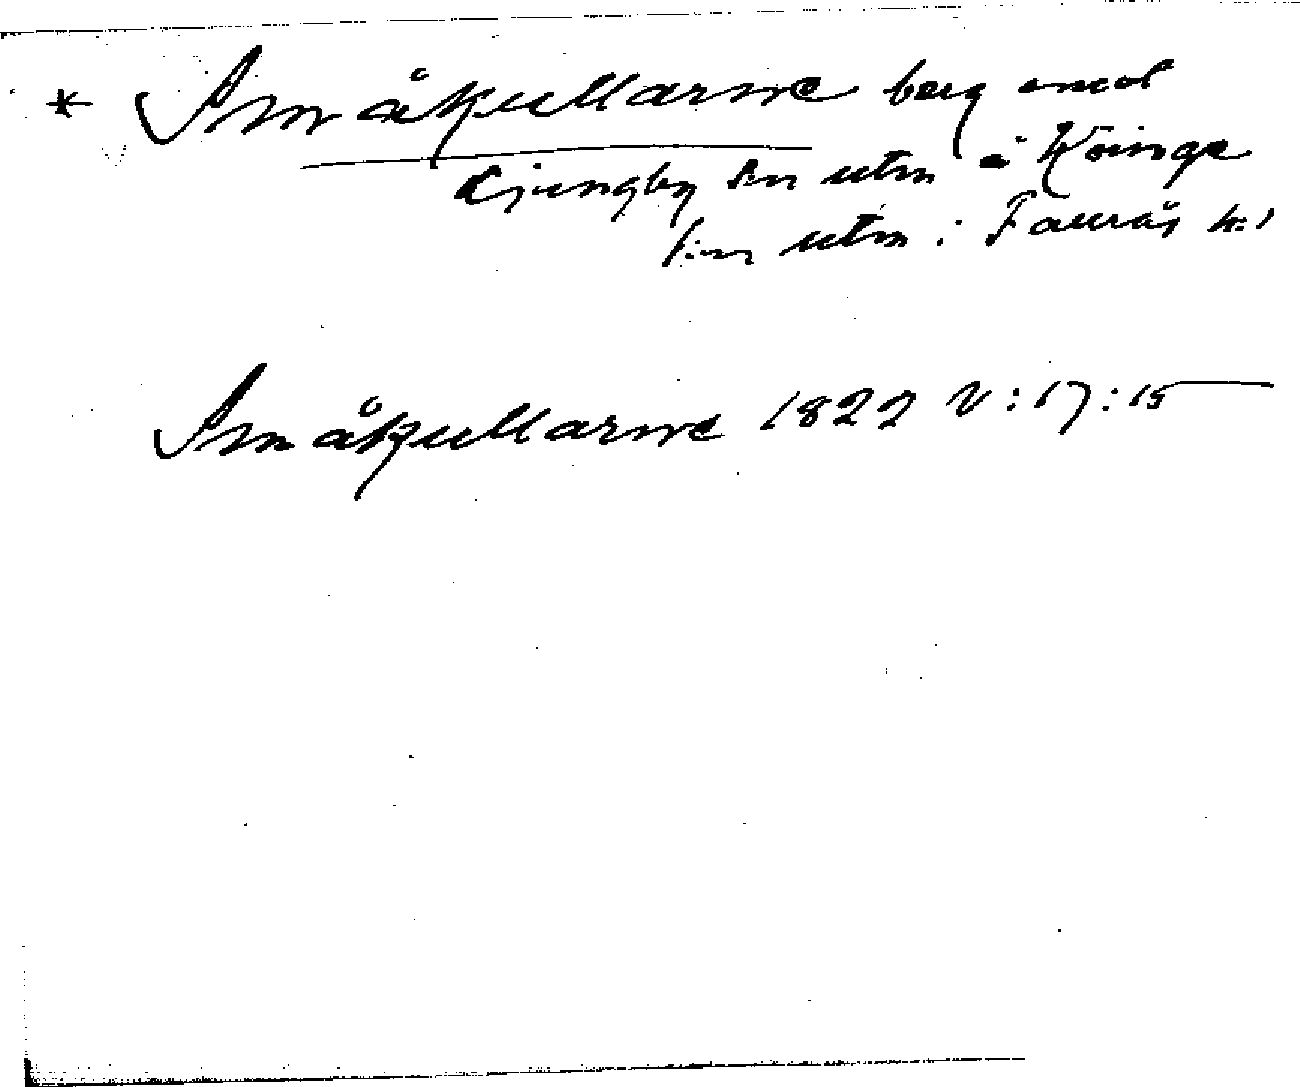 * Småkullarne berg mot
Ljungby sn utm å Köinge
sn utm i Faurås h:d
Småkullarne 1822 V:17:15